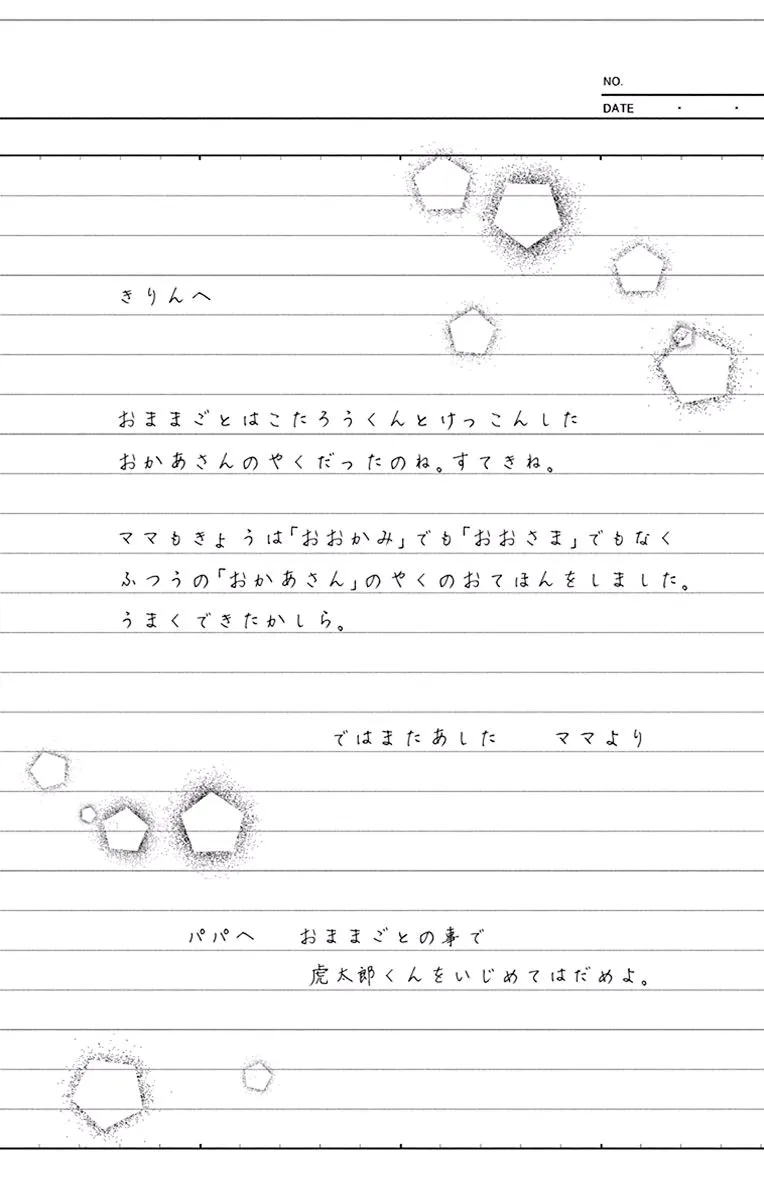 NO.
DATE ・ ・
きりんへ
おままごとはこたろうくんとけっこんした
おかあさんのやくだったのね。すてきね。
ママもきょうは「おおかみ」でも「おおさま」でもなく
ふつうの「おかあさん」のやくのおてほんをしました。
うまくできたかしら。
ではまたあした ママより
パパへ おままごとの事で
虎太郎くんをいじめてはだめよ。